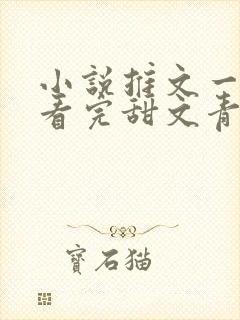 小說推文一
看完甜文青
寶石猫